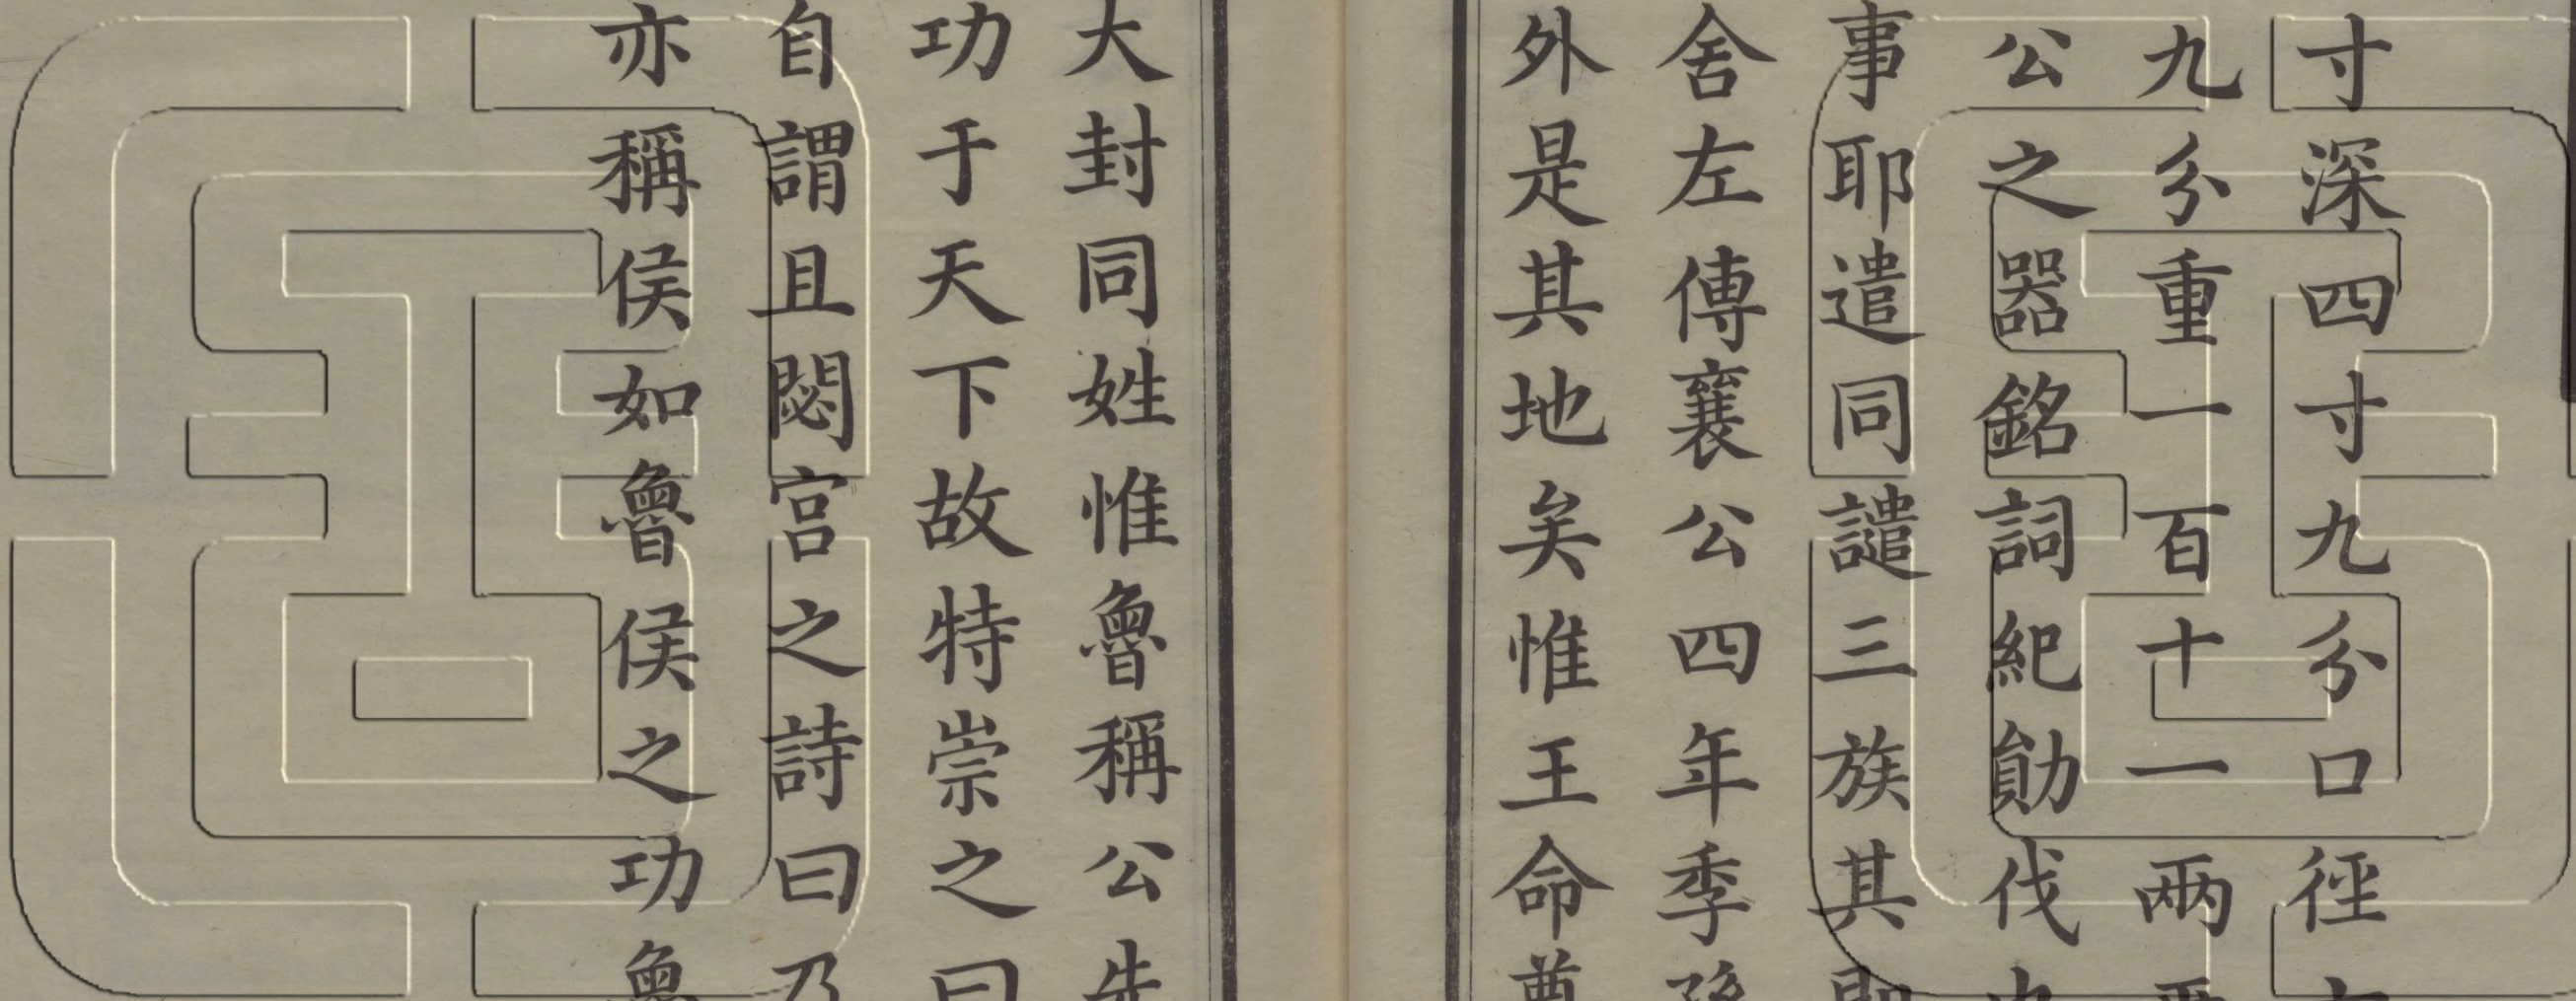 寸深四寸九分口徑
九分重一百十一兩兩
公之器銘詞紀勛伐
事耶遣同譴三族其
舍左傳襄公四年季孫
外是其地矣惟王命尊
大封同姓惟魯稱公先
功于天下故特崇之曰
自謂且閟宮之詩曰乃
亦稱侯如魯侯之功魯